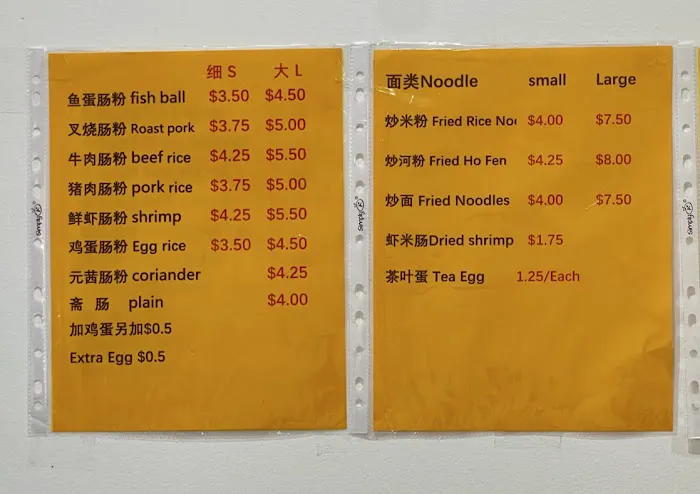 细 S 大 L
鱼蛋肠粉 fish ball $3.50 $4.50
叉烧肠粉 Roast pork $3.75 $5.00
牛肉肠粉 beef rice $4.25 $5.50
猪肉肠粉 pork rice $3.75 $5.00
鲜虾肠粉 shrimp $4.25 $5.50
鸡蛋肠粉 Egg rice $3.50 $4.50
元茜肠粉 coriander $4.25
斋 肠 plain $4.00
加鸡蛋另加$0.5
Extra Egg $0.5
面类Noodle small Large
炒米粉 Fried Rice Noo $4.00 $7.50
炒河粉 Fried Ho Fen $4.25 $8.00
炒面 Fried Noodles $4.00 $7.50
虾米肠Dried shrimp $1.75
茶叶蛋 Tea Egg 1.25/Each
simply
simply
simply